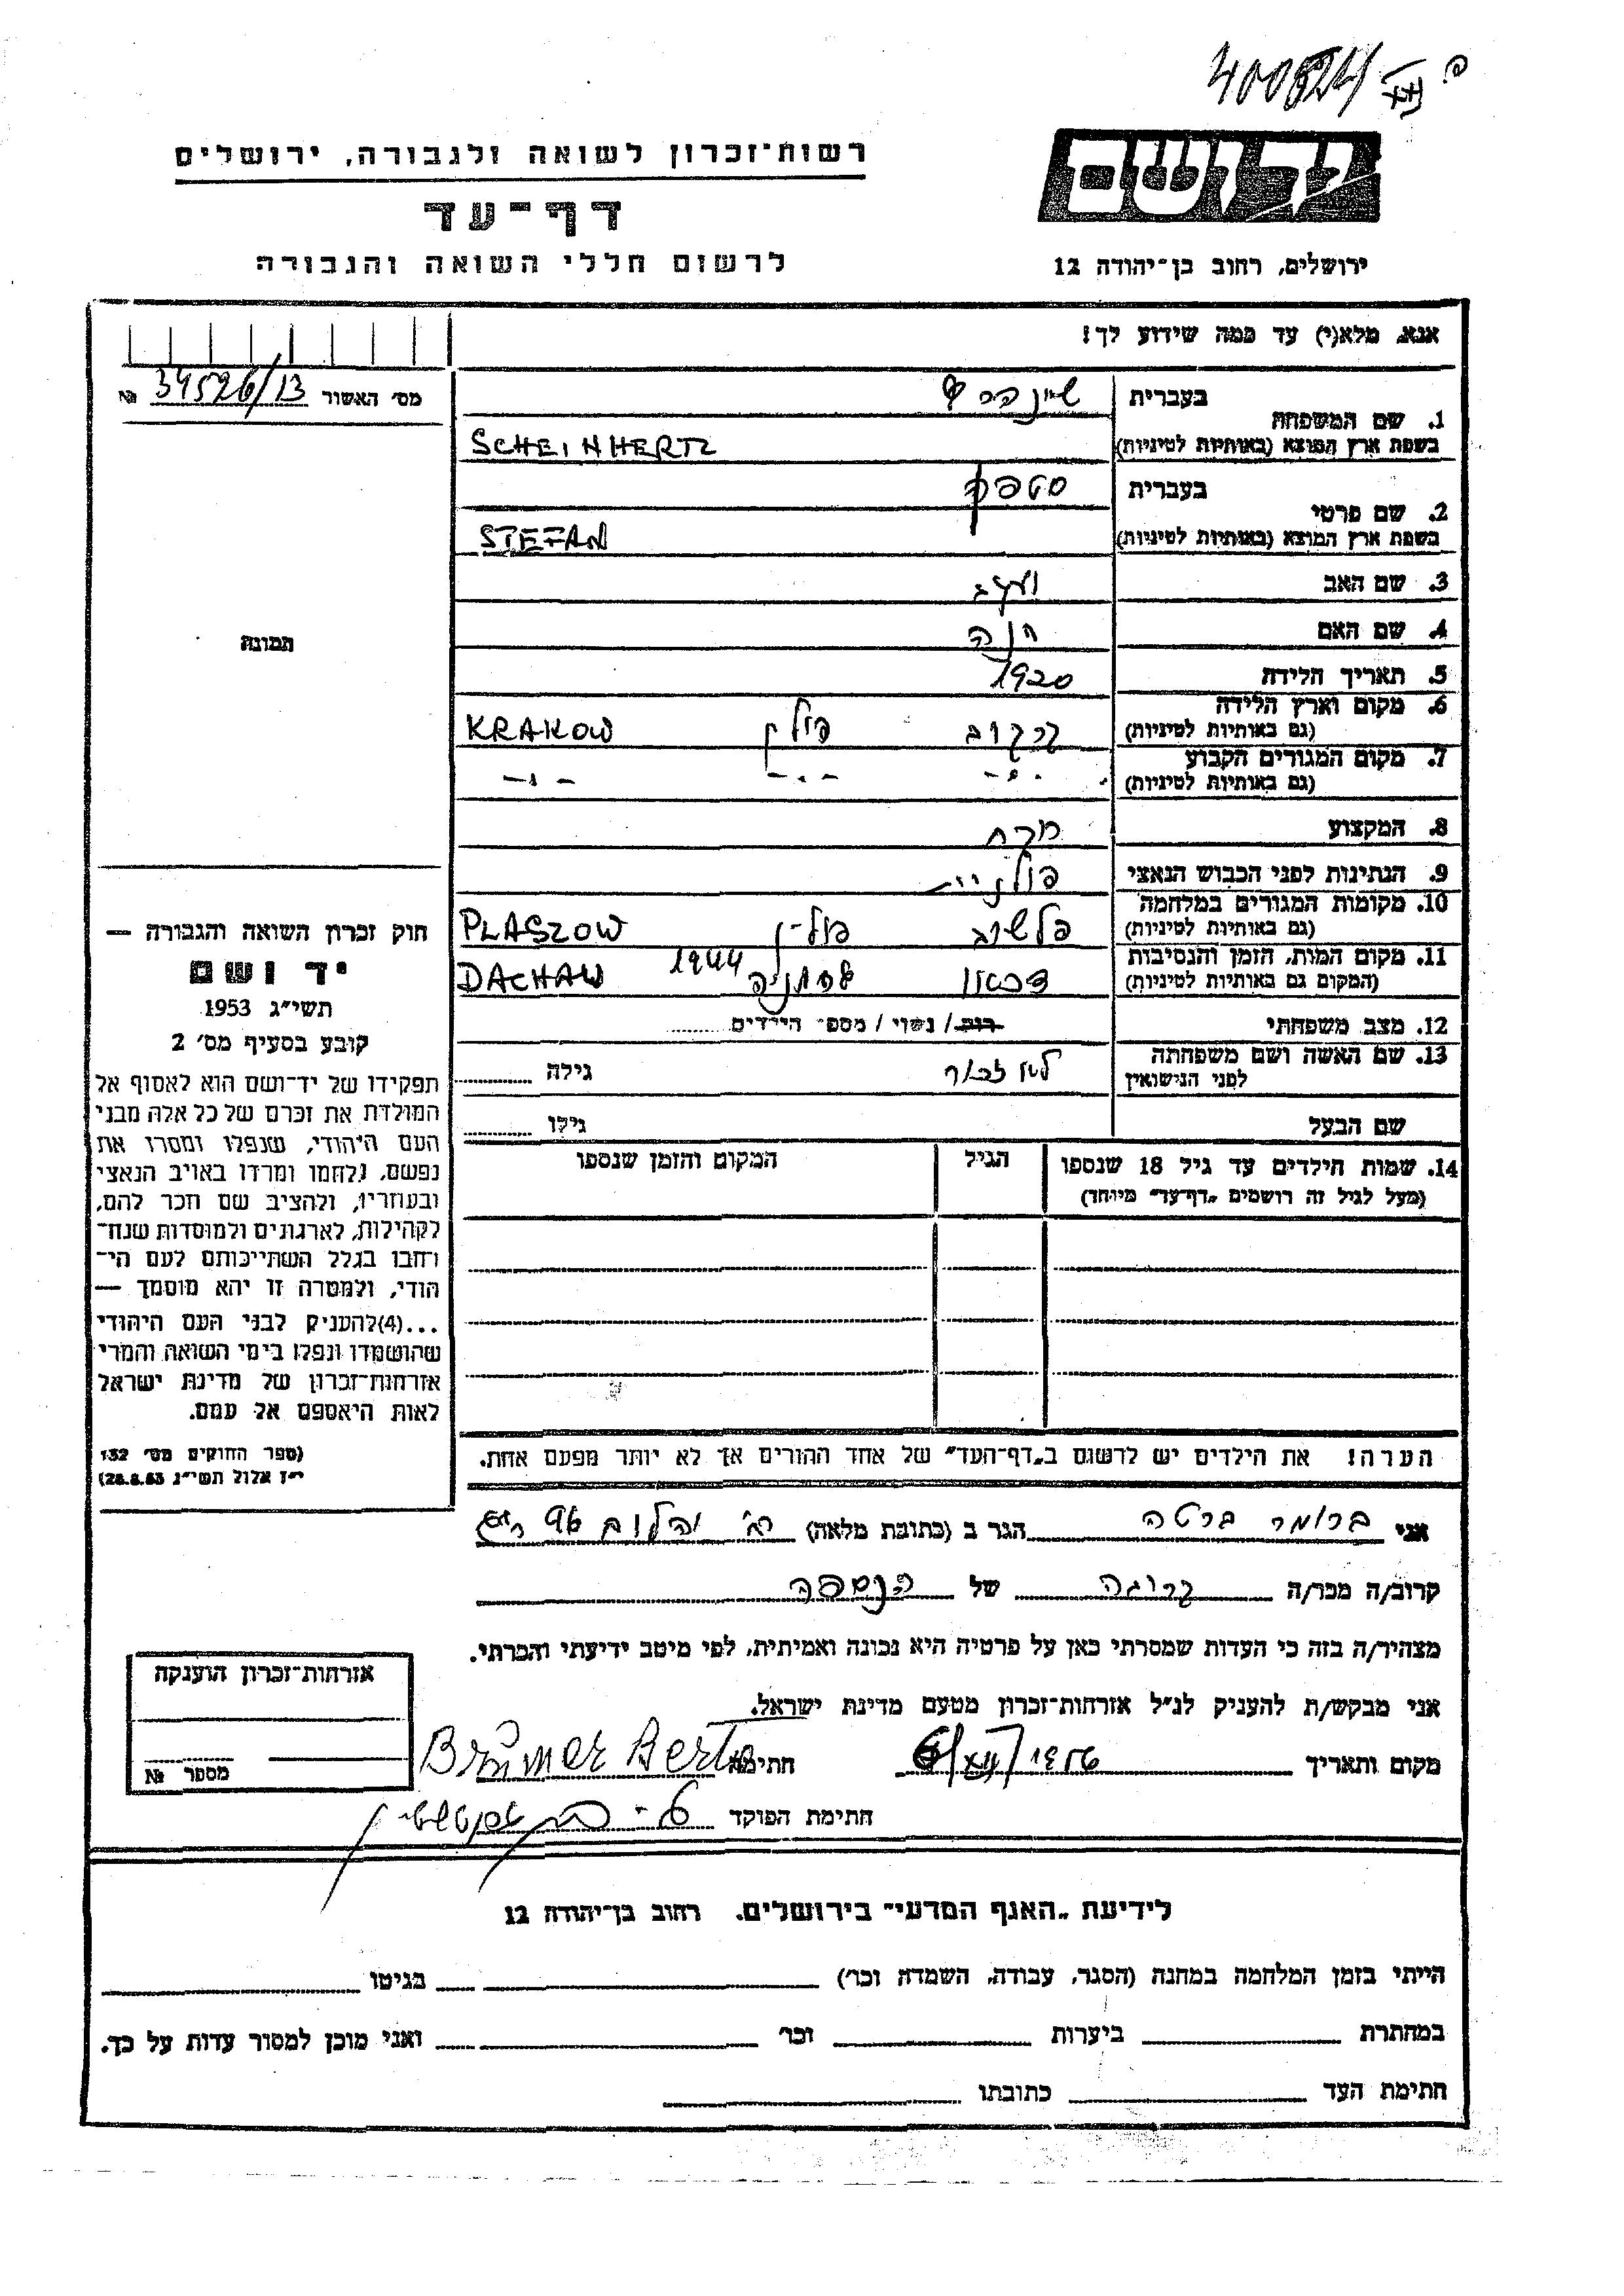 400524/
רשות־זכרון לשואה ולגבורה, ירושלים
דף־עד
לרשום חללי השואה והגבורה
יד ושם
ירושלים, רחוב בן־יהודה 12
אנא, מלא(י) עד כמה שידוע לך!
מס׳ האשור 34526/13 №
בעברית
1. שם המשפחה
בשפת ארץ המוצא (באותיות לטיניות) SCHEINHERTZ
בעברית סטפן
2. שם פרטי
בשפת ארץ המוצא (באותיות לטיניות) STEFAN
3. שם האב
4. שם האם חנה
5. תאריך הלידה 1920
6. מקום וארץ הלידה
(גם באותיות לטיניות) קרקוב פולין KRAKOW
7. מקום המגורים הקבוע
(גם באותיות לטיניות) -"- -"- -"-
8. המקצוע
9. הנתינות לפני הכבוש הנאצי פולנית
10. מקומות המגורים במלחמה
(גם באותיות לטיניות) פלשוב פולין PLASZOW
11. מקום המות, הזמן והנסיבות
(המקום גם באותיות לטיניות) דכאו גרמניה 1944 DACHAW
12. מצב משפחתי רוק/ נשוי / מספר הילדים
13. שם האשה ושם משפחתה
לפני הנישואין גילה
שם הבעל גילו
14. שמות הילדים עד גיל 18 שנספו הגיל המקום והזמן שנספו
(מעל לגיל זה רושמים „דף־עד״ מיוחד)
הערה! את הילדים יש לרשום ב„דף־העד״ של אחד ההורים אך לא יותר מפעם אחת.
תמונה
חוק זכרון השואה והגבורה —
יד ושם
תשי״ג 1953
קובע בסעיף מס׳ 2
תפקידו של יד־ושם הוא לאסוף אל
המולדת את זכרם של כל אלה מבני
העם היהודי, שנפלו ומסרו את
נפשם, נלחמו ומרדו באויב הנאצי
ובעוזריו, ולהציב שם וזכר להם,
לקהילות, לארגונים ולמוסדות שנח־
רחבו בגלל השתייכותם לעם הי־
הודי, ולמטרה זו יהא מוסמך —
...(4)להעניק לבני העם היהודי
שהושמדו ונפלו בימי השואה והמרי
אזרחות־זכרון של מדינת ישראל
לאות היאספם אל עמם.
(ספר החוקים מס׳ 132
י״ז אלול תשי״ג 28.8.53)
אני ברומר ברטה הגר ב (כתובת מלאה)
קרוב/ה מכר/ה קרובה של הנספה
מצהיר/ה בזה כי העדות שמסרתי כאן על פרטיה היא נכונה ואמיתית, לפי מיטב ידיעתי והכרתי.
אני מבקש/ת להעניק לנ״ל אזרחות־זכרון מטעם מדינת ישראל.
מקום ותאריך 6/XII/1956 חתימה Brumer Berta
חתימת הפוקד
אזרחות־זכרון הוענקה
מספר №
לידיעת „האגף המדעי״ בירושלים. רחוב בן־יהודה 12
הייתי בזמן המלחמה במחנה (הסגר, עבודה, השמדה וכו׳) בגיטו
במחתרת ביערות וכו׳ ואני מוכן למסור עדות על כך.
חתימת העד כתובתו